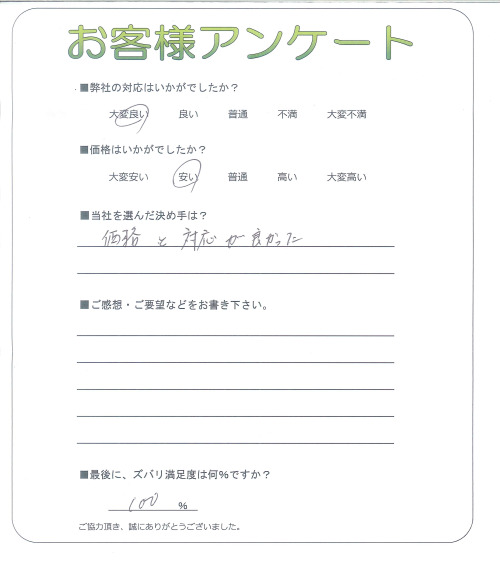 お客様アンケート
■弊社の対応はいかがでしたか？
大変良い 良い 普通 不満 大変不満
■価格はいかがでしたか？
大変安い 安い 普通 高い 大変高い
■当社を選んだ決め手は？
価格と対応が良かった
■ご感想・ご要望などをお書き下さい。
■最後に、ズバリ満足度は何%ですか？
100 %
ご協力頂き、誠にありがとうございました。